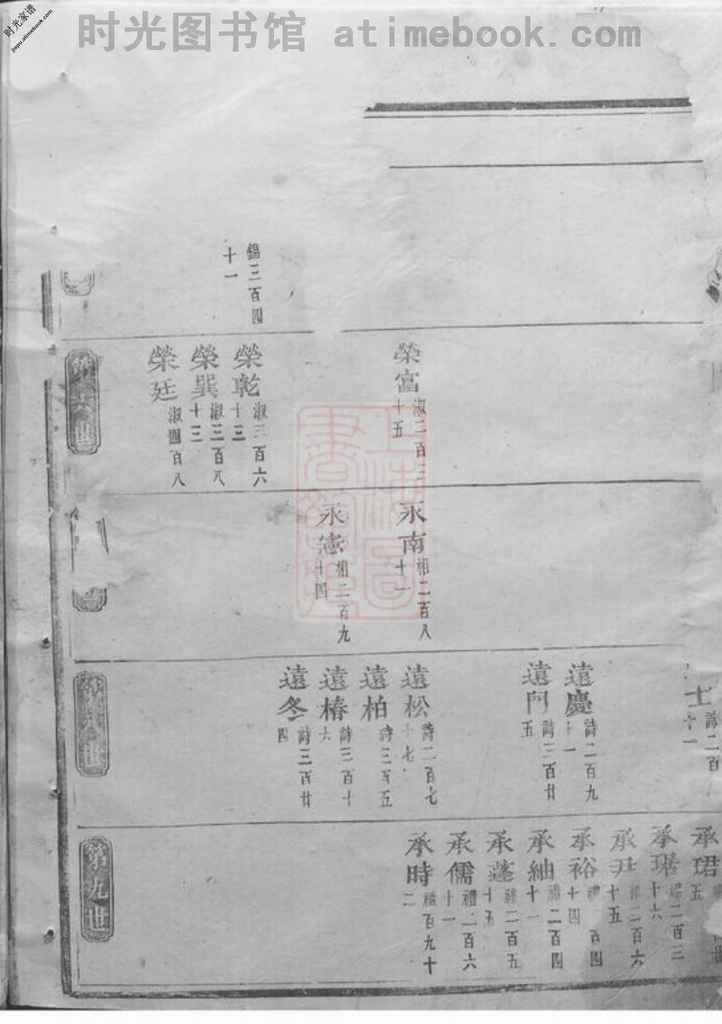 时光图书馆 atimebook.com
时光家谱
www.atimebook.com
錫三百四
十一
榮富 淑二百三
十五
榮乾 淑三百六
十三
榮巽 淑三百八
十三
榮廷 淑四百八
永南 相二百八
十一
永憲 相二百九
十四
士 詩二百
十一
遠慶 詩二百九
十一
遠門 詩三百廿
五
遠松 詩二百七
十七
遠柏 詩三百五
遠椿 詩三百十
六
遠冬 詩三百廿
四
承珺
五
承琚 禮二百三
十六
承尹 禮二百六
十五
承裕 禮 百四
十四
承紬 禮二百四
十一
承蓬 禮二百五
十五
承儒 禮二百六
十一
承時 禮百九十
二
第九世